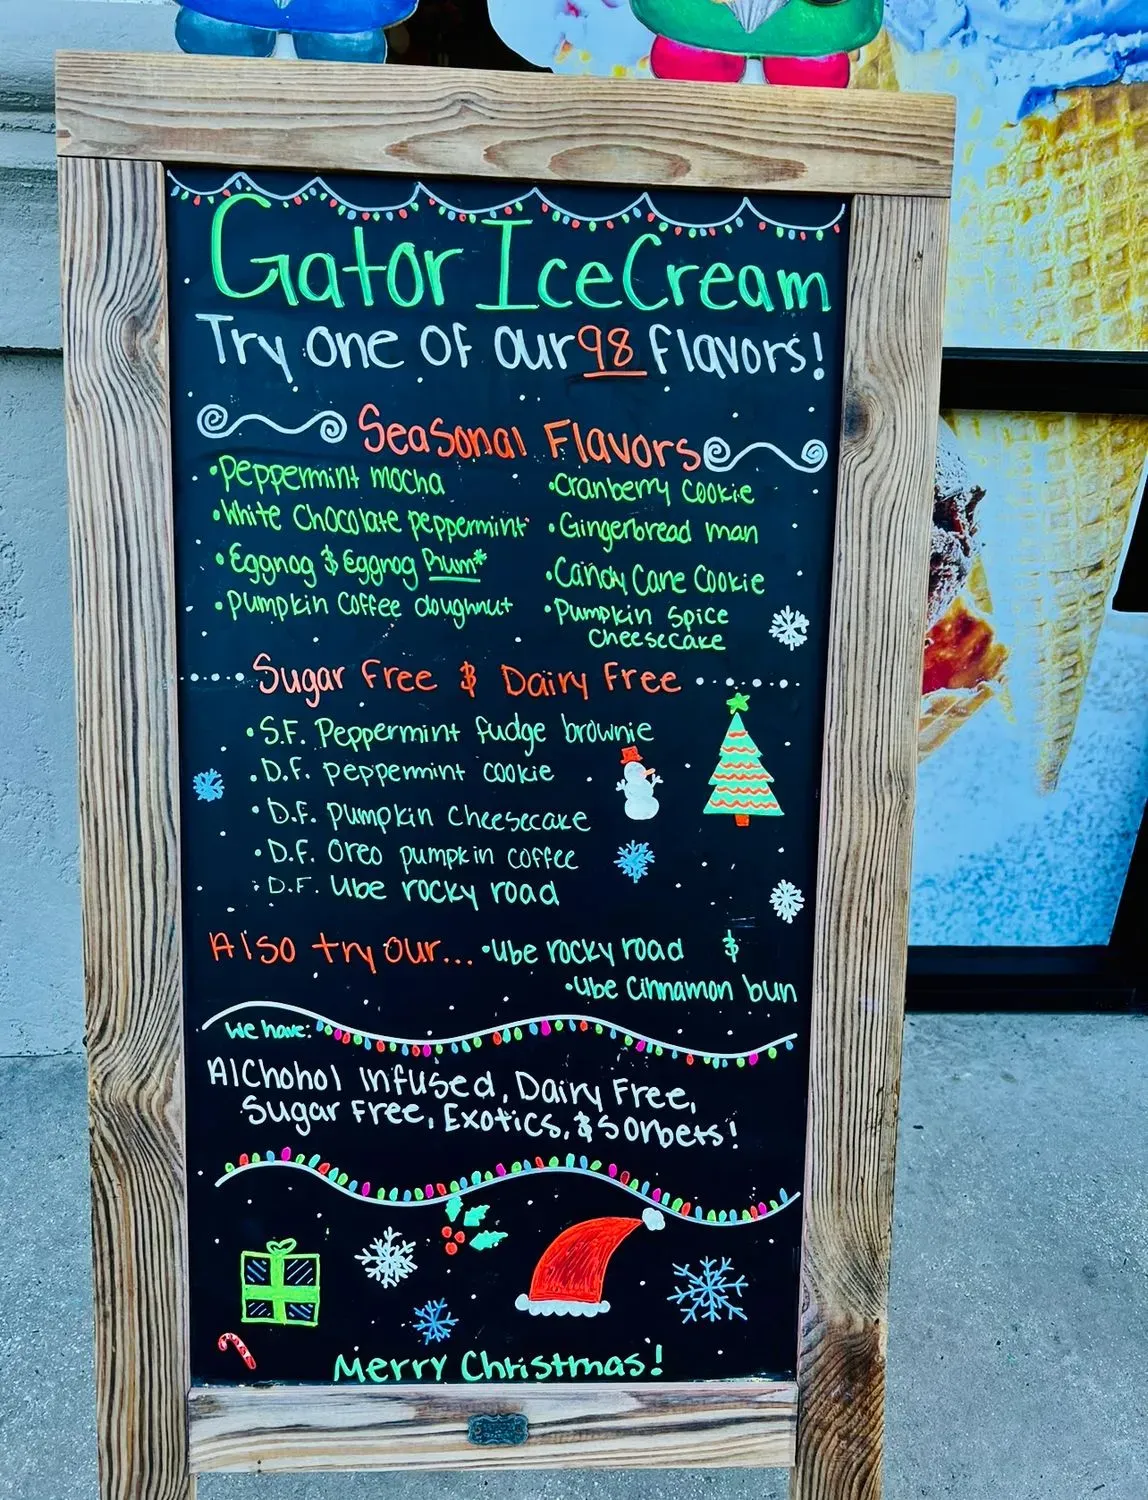 Gator Ice Cream
Try one of our 98 flavors!
Seasonal Flavors
•Peppermint mocha
•White Chocolate peppermint
•Eggnog & Eggnog Rum*
•Pumpkin Coffee doughnut
•Cranberry Cookie
•Gingerbread man
•Candy Cane Cookie
•Pumpkin Spice
Cheesecake
Sugar Free & Dairy Free
•S.F. Peppermint fudge brownie
•D.F. peppermint cookie
•D.F. Pumpkin Cheesecake
•D.F. Oreo pumpkin coffee
•D.F. Ube rocky road
Also try our... •Ube rocky road &
•Ube Cinnamon bun
We have:
Alchohol infused, Dairy Free,
Sugar Free, Exotics, & Sorbets!
Merry Christmas!